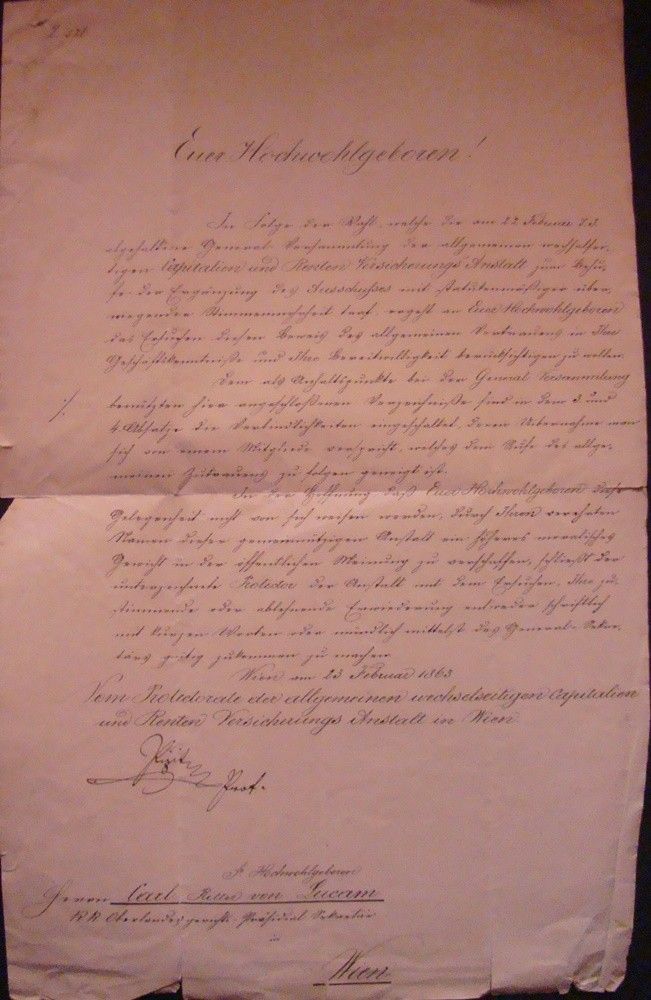 Euer Hochwohlgeboren!
In Folge der Wahl, welche die am 22 Februar d.J.
abgehaltene General-Versammlung der allgemeinen wechselsei-
tigen Capitalien und Renten Versicherungs Anstalt zum Behu-
fe der Ergänzung des Ausschußes mit statutenmäßiger über-
wiegender Stimmenmehrheit traf, ergeht an Euer Hochwohlgeboren
das Ersuchen diesen Beweis des allgemeinen Vertrauens in Ihre
Geschäftskenntniße und Ihre Bereitwilligkeit berücksichtigen zu wollen.
Dem als Anhaltspunkte bei der General Versammlung
benützten hier angeschloßenen Verzeichniße sind in dem 3. und
4. Absatze die Verbindlichkeiten eingeschaltet, deren Übernahme man
sich von einem Mitgliede verspricht, welches dem Rufe des allge-
meinen Zutrauens zu folgen geneigt ist.
In der Hoffnung daß Euer Hochwohlgeboren diese
Gelegenheit nicht von sich weisen werden, durch Ihren verehrten
Namen dieser gemeinnützigen Anstalt ein höheres moralisches
Gewicht in der öffentlichen Meinung zu verschaffen, schließt der
unterzeichnete Protector der Anstalt mit dem Ersuchen, Ihre zu-
stimmende oder ablehnende Erwiederung entweder schriftlich
mit kurzen Worten oder mündlich mittelst des General-Sekre-
tärs gütig zukommen zu machen
Wien am 23 Februar 1863
Vom Protectorate der allgemeinen wechselseitigen Capitalien
und Renten Versicherungs Anstalt in Wien
Prot.
Hochwohlgeboren
Herrn Carl Ritter von Lucam
KK Oberlandesgerichts-Präsidial Sekretär
in
Wien